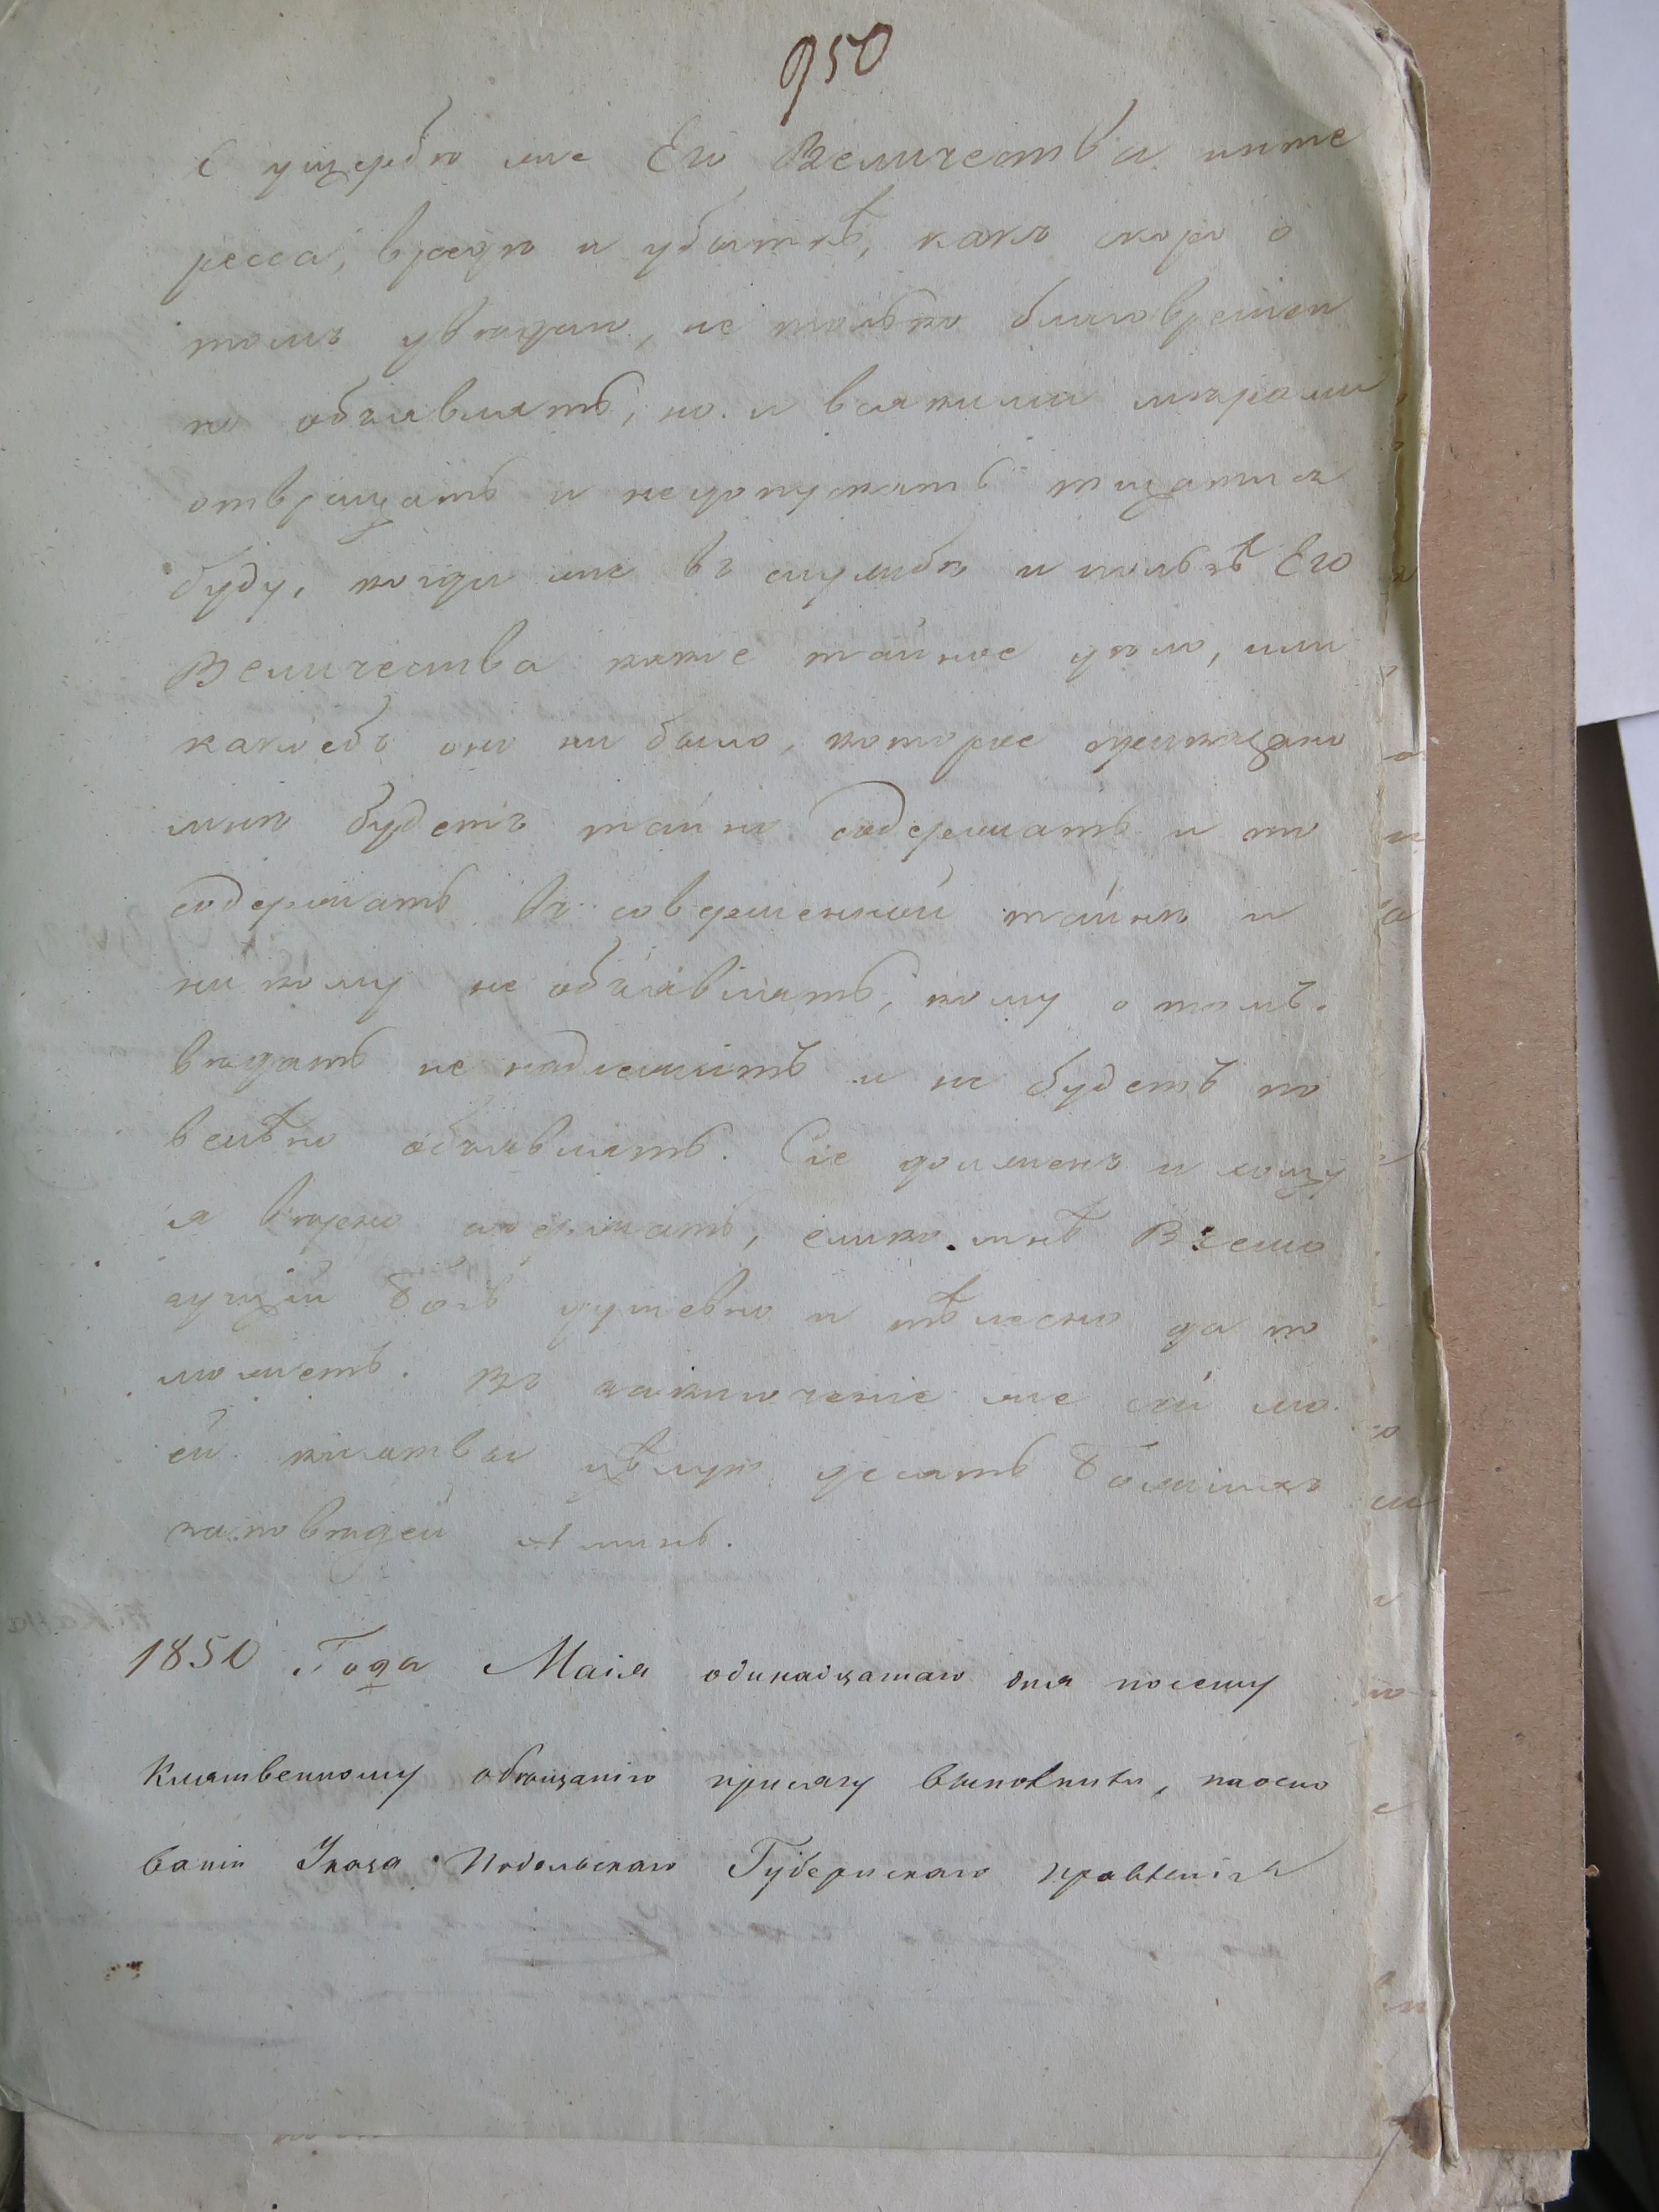 950
О ущербѣ же Его Величества инте
ресса, вредѣ и убыткѣ, какъ скоро о
томъ увѣдаю, не только благовремен
но объявлять, но и всякими мѣрами
отвращать и недопускать тщатися
буду, когда же въ службѣ и пользѣ Его
Величества какое тайное дѣло, или
какоебъ оно ни было, которое приказано
мнѣ будетъ тайно содержать и то
содержать въ совершенной тайнѣ и
ни кому не объявлять, кому о томъ
вѣдать не надлежитъ и не будетъ по
велѣно объявлять. Сіе долженъ и хощу
я вѣрно содержать, елико мнѣ Всемо
гущій Богъ душевно и тѣлесно да по
можетъ. Въ заключеніе же сей мо
ей клятвы цѣлую десять Божіихъ
заповѣдей Аминь.
1850 Года Маія одинадцатаго дня посему
Клятвенному обѣщанію присягу выполнили, наосно
ваніи Указа Подольскаго Губернскаго правленія